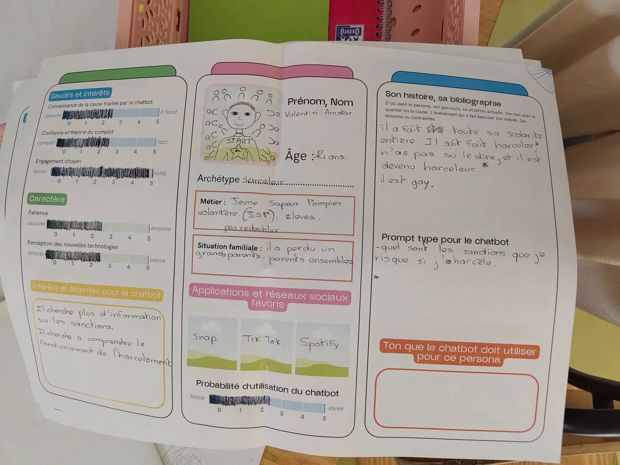 Savoirs et intérêts
Connaissance de la cause traitée par le chatbot
aucune
à fond
0 1 2 3 4 5
Confiance et théorie du complot
complot
fact
0 1 2 3 4 5
Engagement citoyen
aucun
total
0 1 2 3 4 5
Caractère
Patience
aucune
énorme
0 1 2 3 4 5
Perception des nouvelles technologies
déteste
adore
0 1 2 3 4 5
Intérêts et attentes pour le chatbot
Il cherche plus d'information
sur les sanctions.
Il cherche a comprendre le
fonctionnement de l'harcelement
START
Prénom, Nom
Valentin
Âge : ans.
Archétype harceleur
Métier : Jeune Sapeur Pompier
volontère (JSP). éleves.
pas redoubler
Situation familiale : il a perdu un
grands parents. parents ensembles
Applications et réseaux sociaux
favoris
Snap.
Tik Tok.
Spotify.
Probabilité d'utilisation du chatbot
faible
élevé
0 1 2 3 4 5
Son histoire, sa bibliographie
D'où vient la persona, son parcours, sa situation actuelle. Son lien avec le
quartier ou la cause. L'événement qui a fait basculer son intérêt. Ses
tensions ou contraintes.
il a fait toute sa scolarité
entière. Il s'ait fait harceler*
n'as pas su le dire, et il est
devenu harceleur *
il est gay.
Prompt type pour le chatbot
-quel sont les sanctions que je
risque si j'harcèle.
Ton que le chatbot doit utiliser
pour ce persona